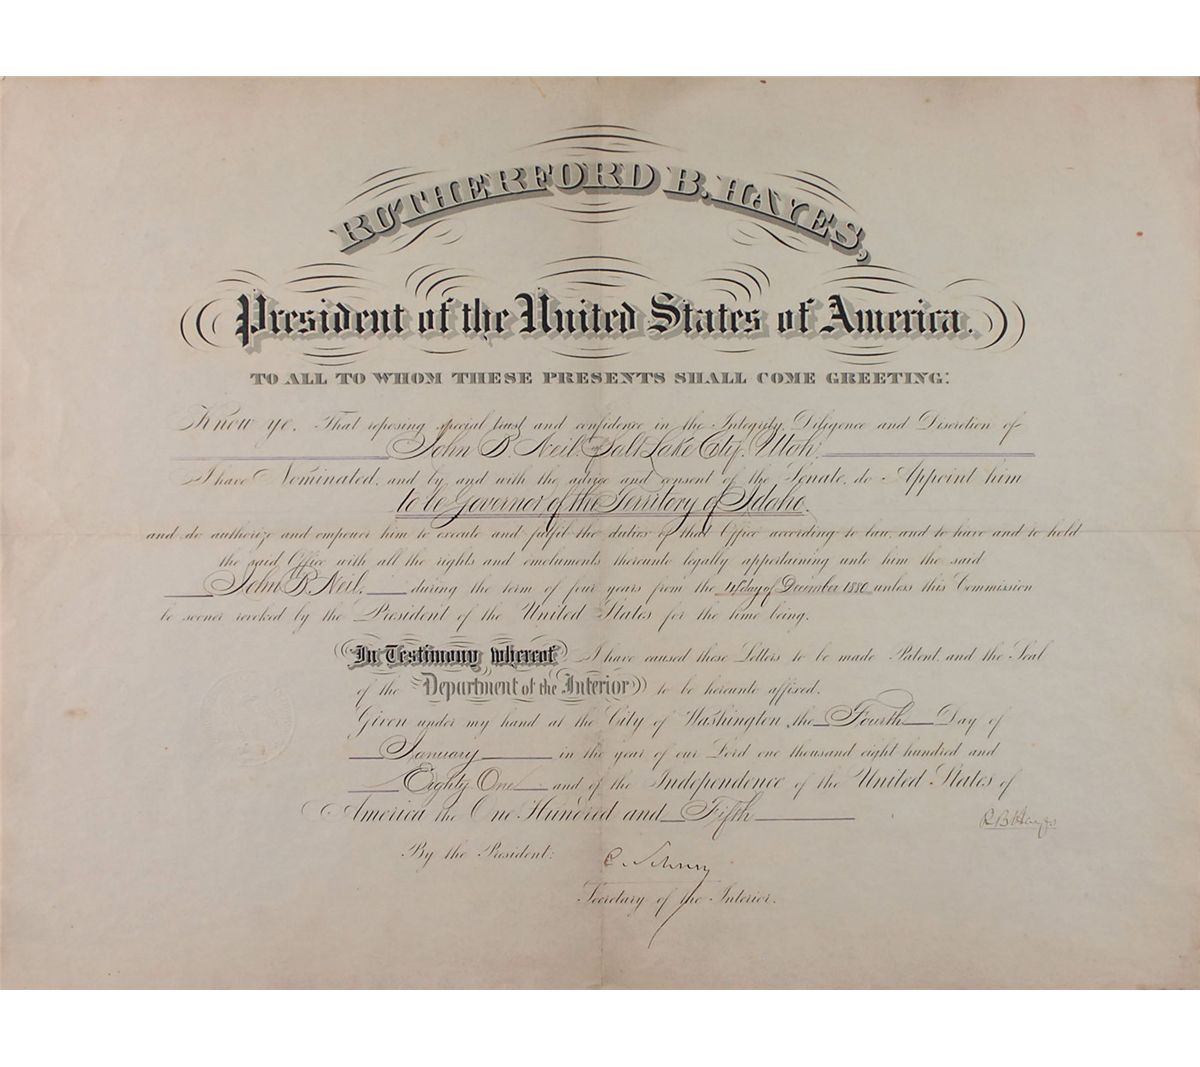 RUTHERFORD B. HAYES,
President of the United States of America.
TO ALL TO WHOM THESE PRESENTS SHALL COME GREETING:
Know ye, That reposing special trust and confidence in the Integrity, Diligence and Discretion of
John B Neil, of Salt Lake City, Utah,
I have Nominated, and by and with the advice and consent of the Senate, do Appoint him
to be Governor of the Territory of Idaho,
and do authorize and empower him to execute and fulfil the duties of that Office according to law, and to have and to hold
the said Office with all the rights and emoluments thereunto legally appertaining unto him the said
John B. Neil, during the term of four years from the day of December 1880 unless this Commission
be sooner revoked by the President of the United States for the time being.
In Testimony whereof I have caused these Letters to be made Patent, and the Seal
of the Department of the Interior to be hereunto affixed.
Given under my hand at the City of Washington, the Fourth Day of
January in the year of our Lord one thousand eight hundred and
Eighty One and of the Independence of the United States of
America the One Hundred and Fifth
R B Hayes
By the President:
C. Schurz
Secretary of the Interior.